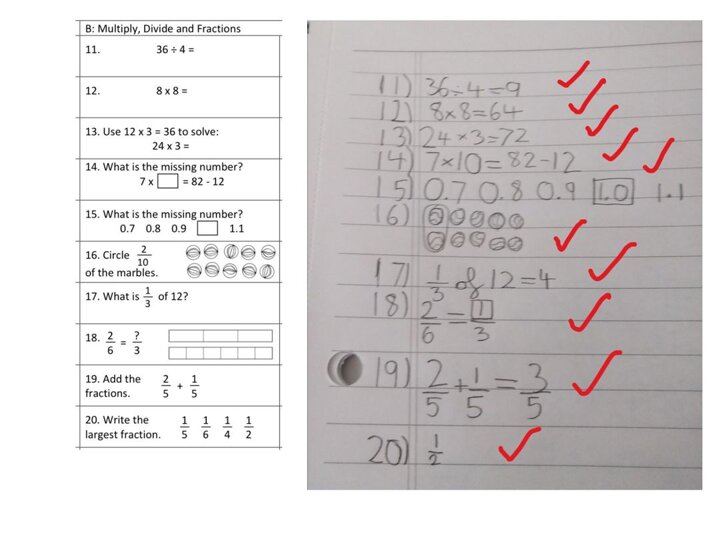 B: Multiply, Divide and Fractions
11. 36 ÷ 4 =
12. 8 x 8 =
13. Use 12 x 3 = 36 to solve:
24 x 3 =
14. What is the missing number?
7 x = 82 - 12
15. What is the missing number?
0.7 0.8 0.9 1.1
16. Circle 2/10
of the marbles.
17. What is 1/3 of 12?
18. 2/6 = ?/3
19. Add the 2/5 + 1/5
fractions.
20. Write the 1/5 1/6 1/4 1/2
largest fraction.
11) 36÷4=9
12) 8x8=64
13) 24x3=72
14) 7x10=82-12
15) 0.7 0.8 0.9 1.0 1.1
16)
17) 1/3 of 12=4
18) 2/6 = 1/3
19) 2/5 + 1/5 = 3/5
20) 1/2